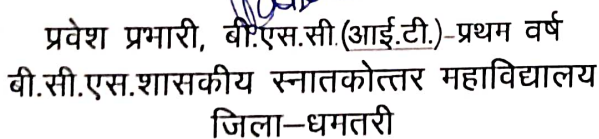 प्रवेश प्रभारी, बी.एस.सी.(आई.टी.)-प्रथम वर्ष
बी.सी.एस.शासकीय स्नातकोत्तर महाविद्यालय
जिला–धमतरी